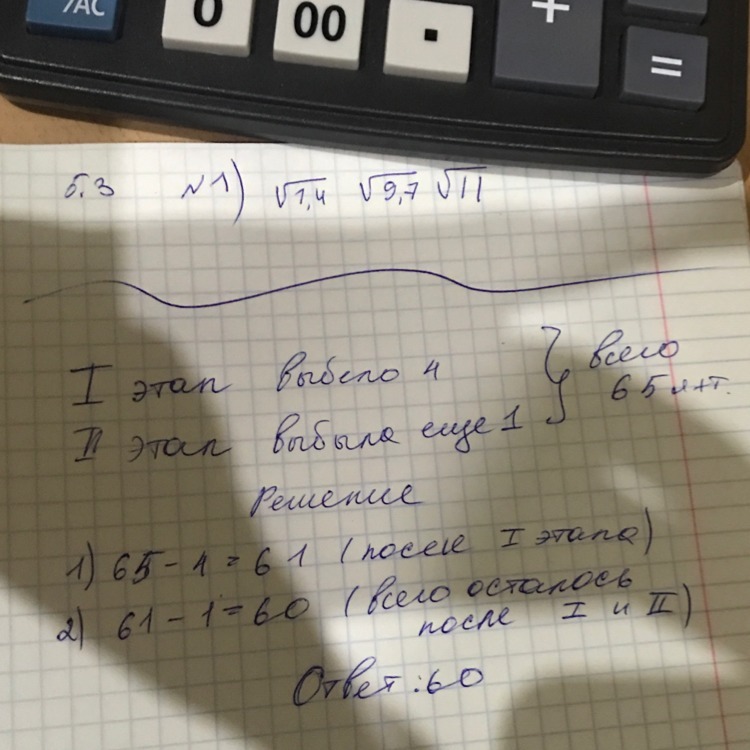 /AC 0 00 . + =
5.3 №1) √1,4 √9,7 √11
I этап выбыло 4 } всего
II этап выбыла еще 1 65 шт.
Решение
1) 65 - 4 = 61 (после I этапа)
2) 61 - 1 = 60 (всего осталось
после I и II)
Ответ: 60